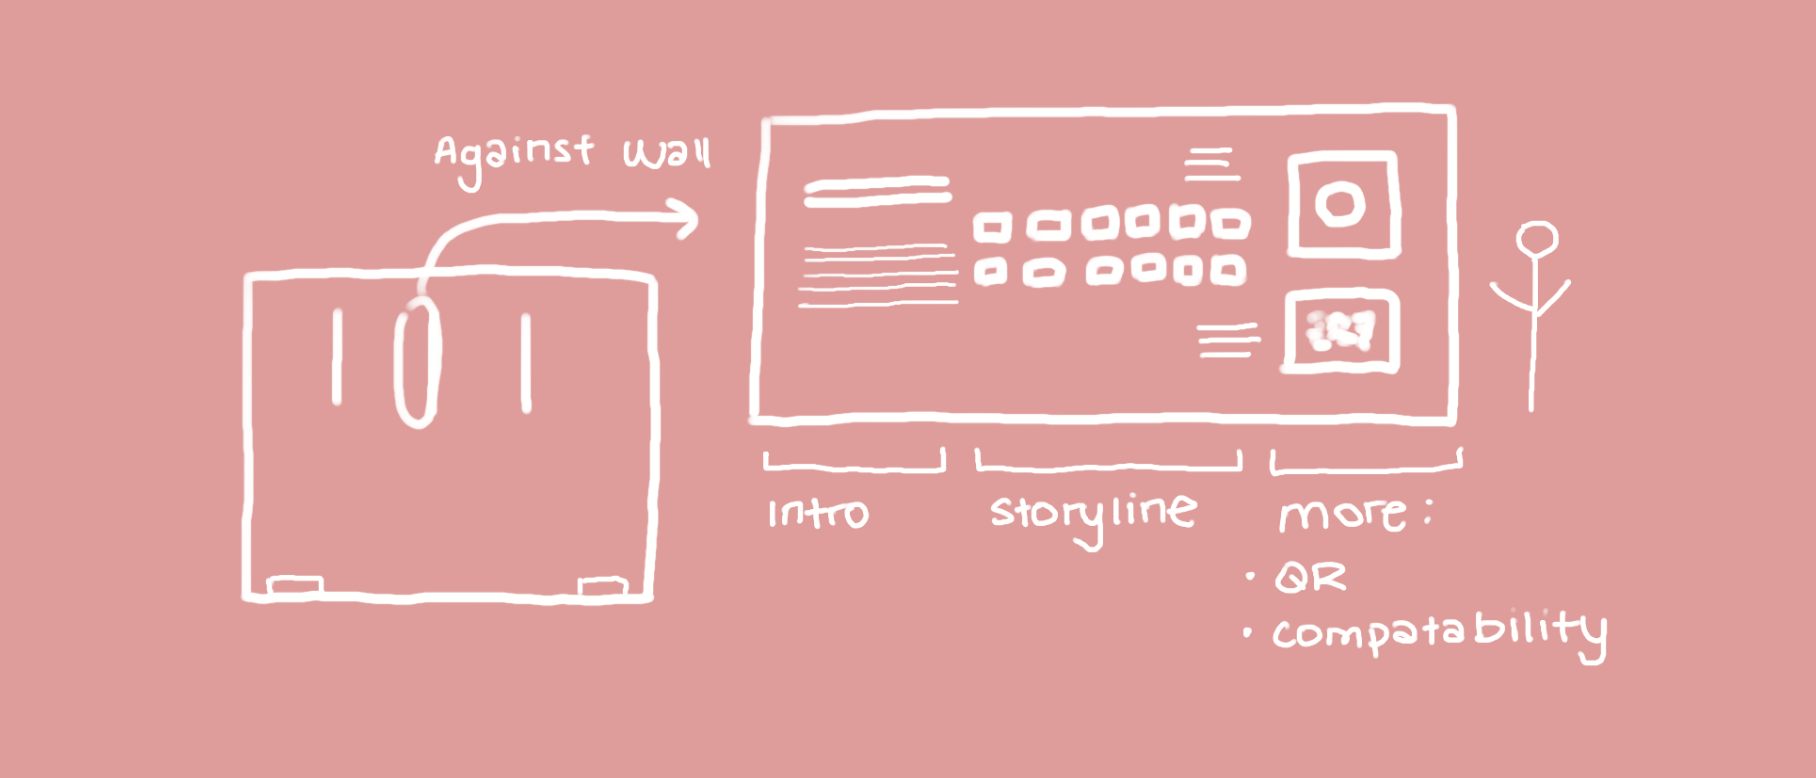 Against wall
Intro
storyline
more:
• QR
• compatability